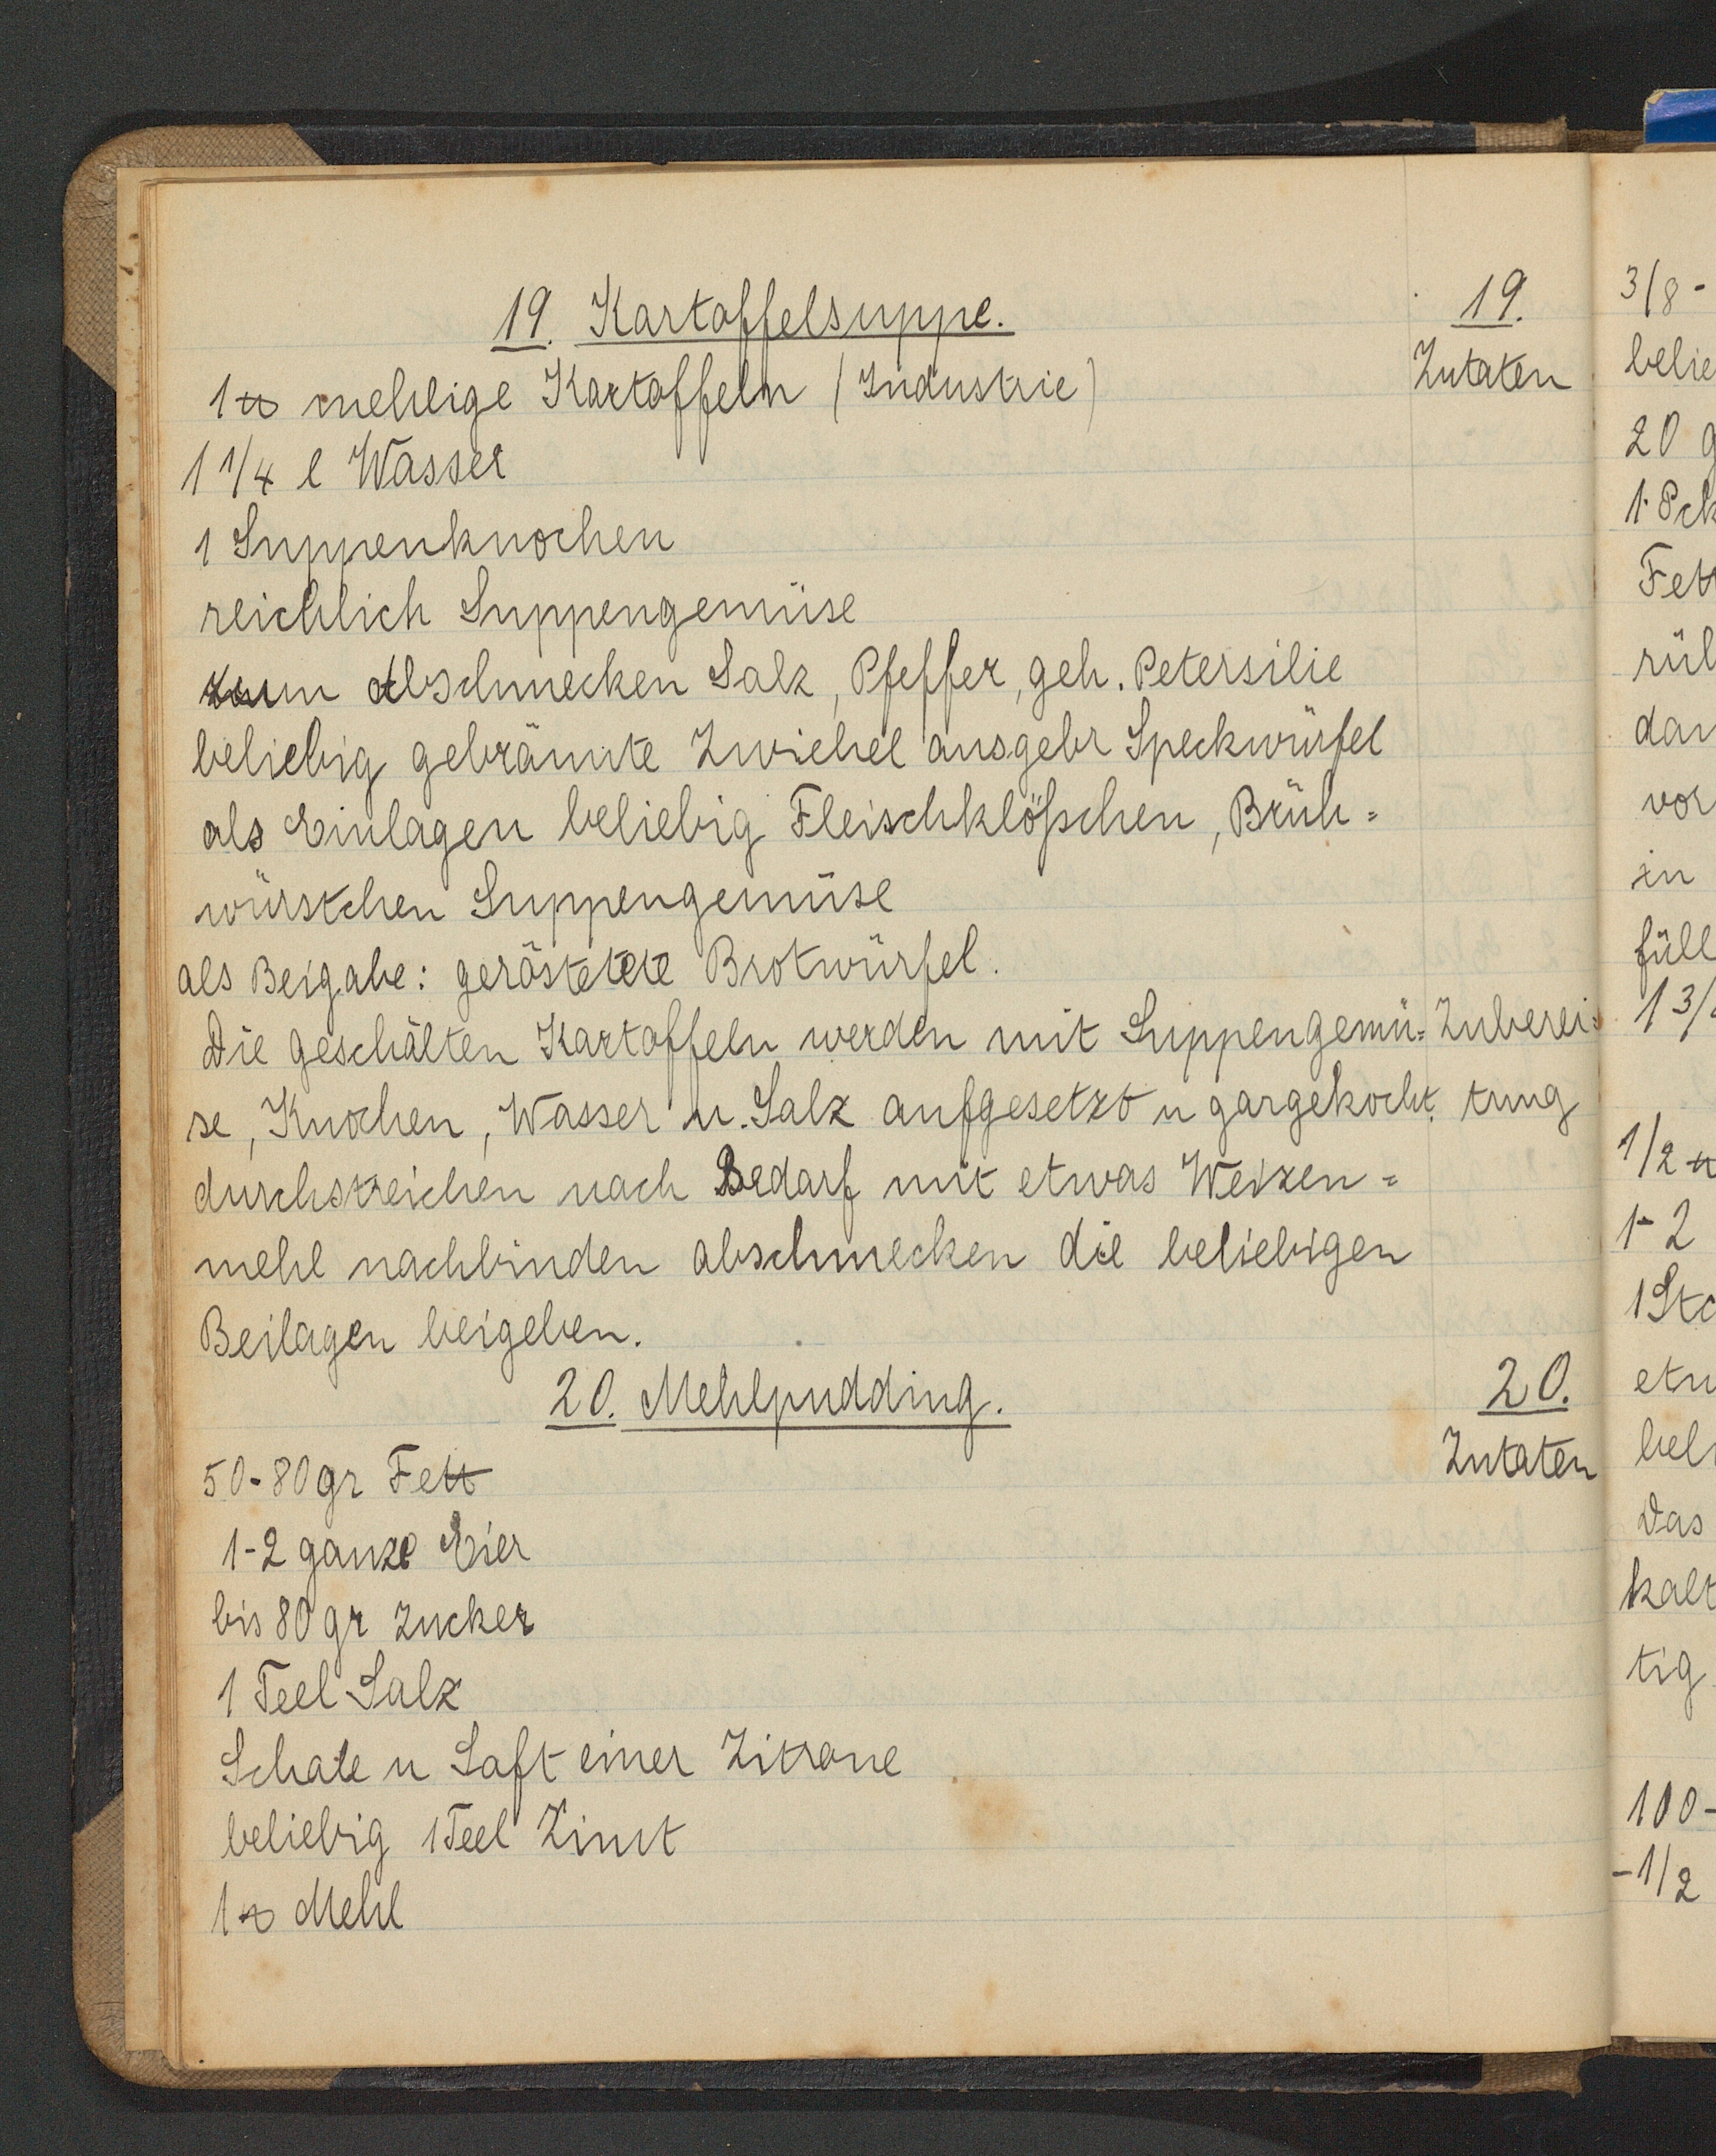 19. Kartoffelsuppe.
19.
1 ℔ mehlige Kartoffeln (Industrie)
Zutaten
1 1/4 l Wasser
1 Suppenknochen
reichlich Suppengemüse
zum Abschmecken Salz, Pfeffer, geh. Petersilie
beliebig gebräunte Zwiebel ausgebr Speckwürfel
als Einlagen beliebig Fleischklößchen, Brüh=
würstchen Suppengemüse
als Beigabe: geröstete Brotwürfel.
Die geschälten Kartoffeln werden mit Suppengemü=
Zuberei=
se, Knochen, Wasser u. Salz aufgesetzt u gargekocht.
tung
durchstreichen nach Bedarf mit etwas Weizen=
mehl nachbinden abschmecken die beliebigen
Beilagen beigeben.
20. Mehlpudding.
20.
50-80gr Fett
Zutaten
1-2 ganze Eier
bis 80 gr Zucker
1 Teel Salz
Schale u Saft einer Zitrone
beliebig 1 Teel Zimt
1 ℔ Mehl
3/8-
belie
20 g
1 Pck
Fett
rüh
dan
vor
in
füll
1 3/
1/2 ℔
1-2
1 Stc
etw
beli
Das
kalt
tig
100-
-1/2